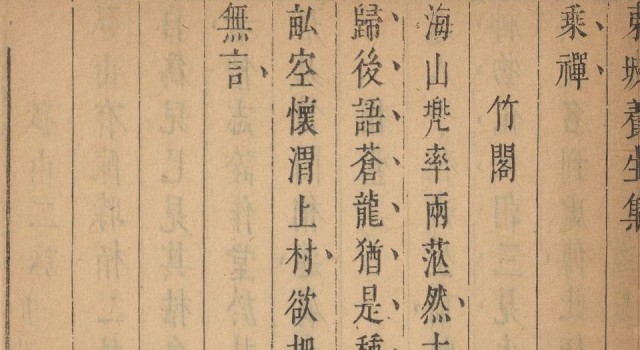 乘禪
竹閣
海山兠率兩茫然
歸後語蒼龍猶是種
畝空懷渭上村欲把
無言